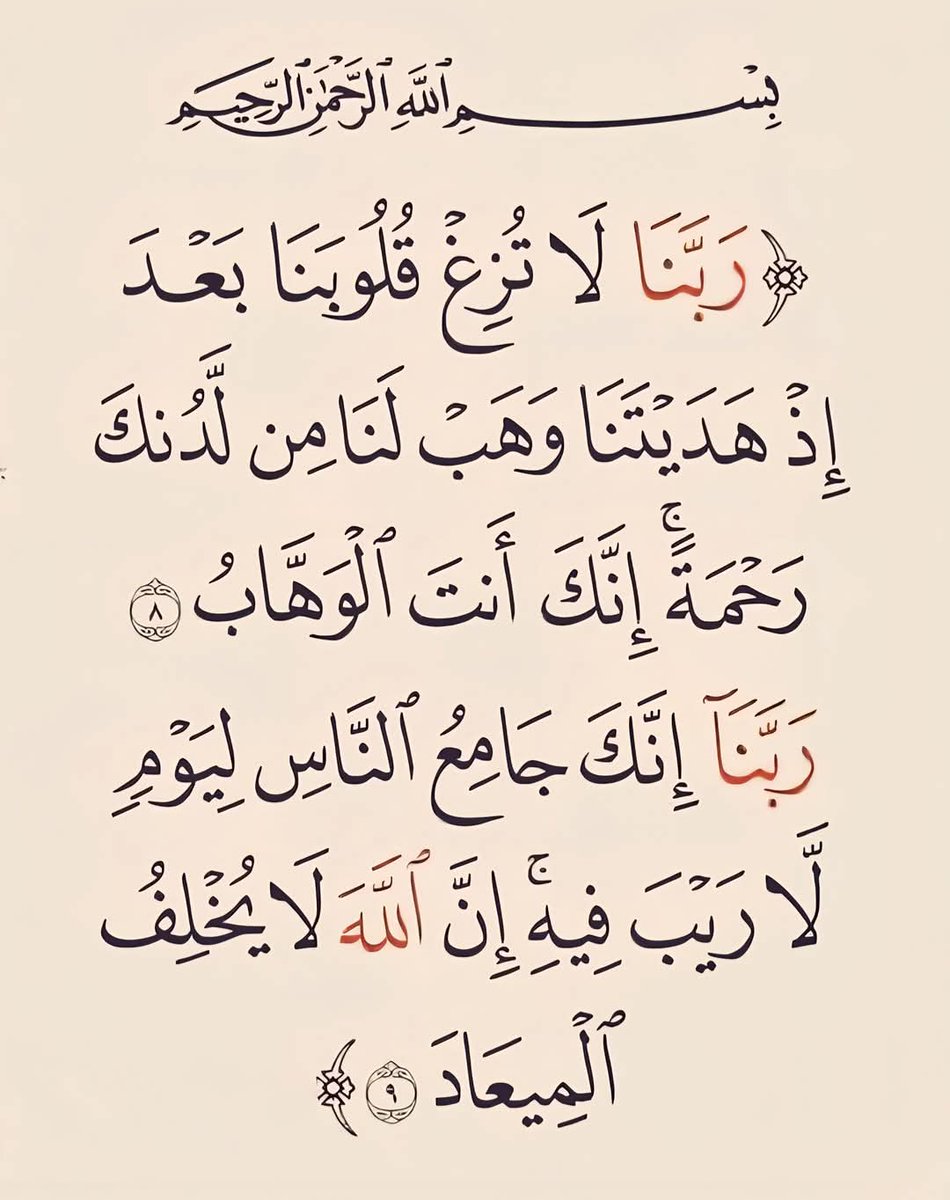 بِسْمِ ٱللَّهِ ٱلرَّحْمَٰنِ ٱلرَّحِيمِ
﴿ رَبَّنَا لَا تُزِغْ قُلُوبَنَا بَعْدَ
إِذْ هَدَيْتَنَا وَهَبْ لَنَا مِن لَّدُنكَ
رَحْمَةً ۚ إِنَّكَ أَنتَ ٱلْوَهَّابُ ٨
رَبَّنَآ إِنَّكَ جَامِعُ ٱلنَّاسِ لِيَوْمٍ
لَّا رَيْبَ فِيهِ ۚ إِنَّ ٱللَّهَ لَا يُخْلِفُ
ٱلْمِيعَادَ ٩ ﴾